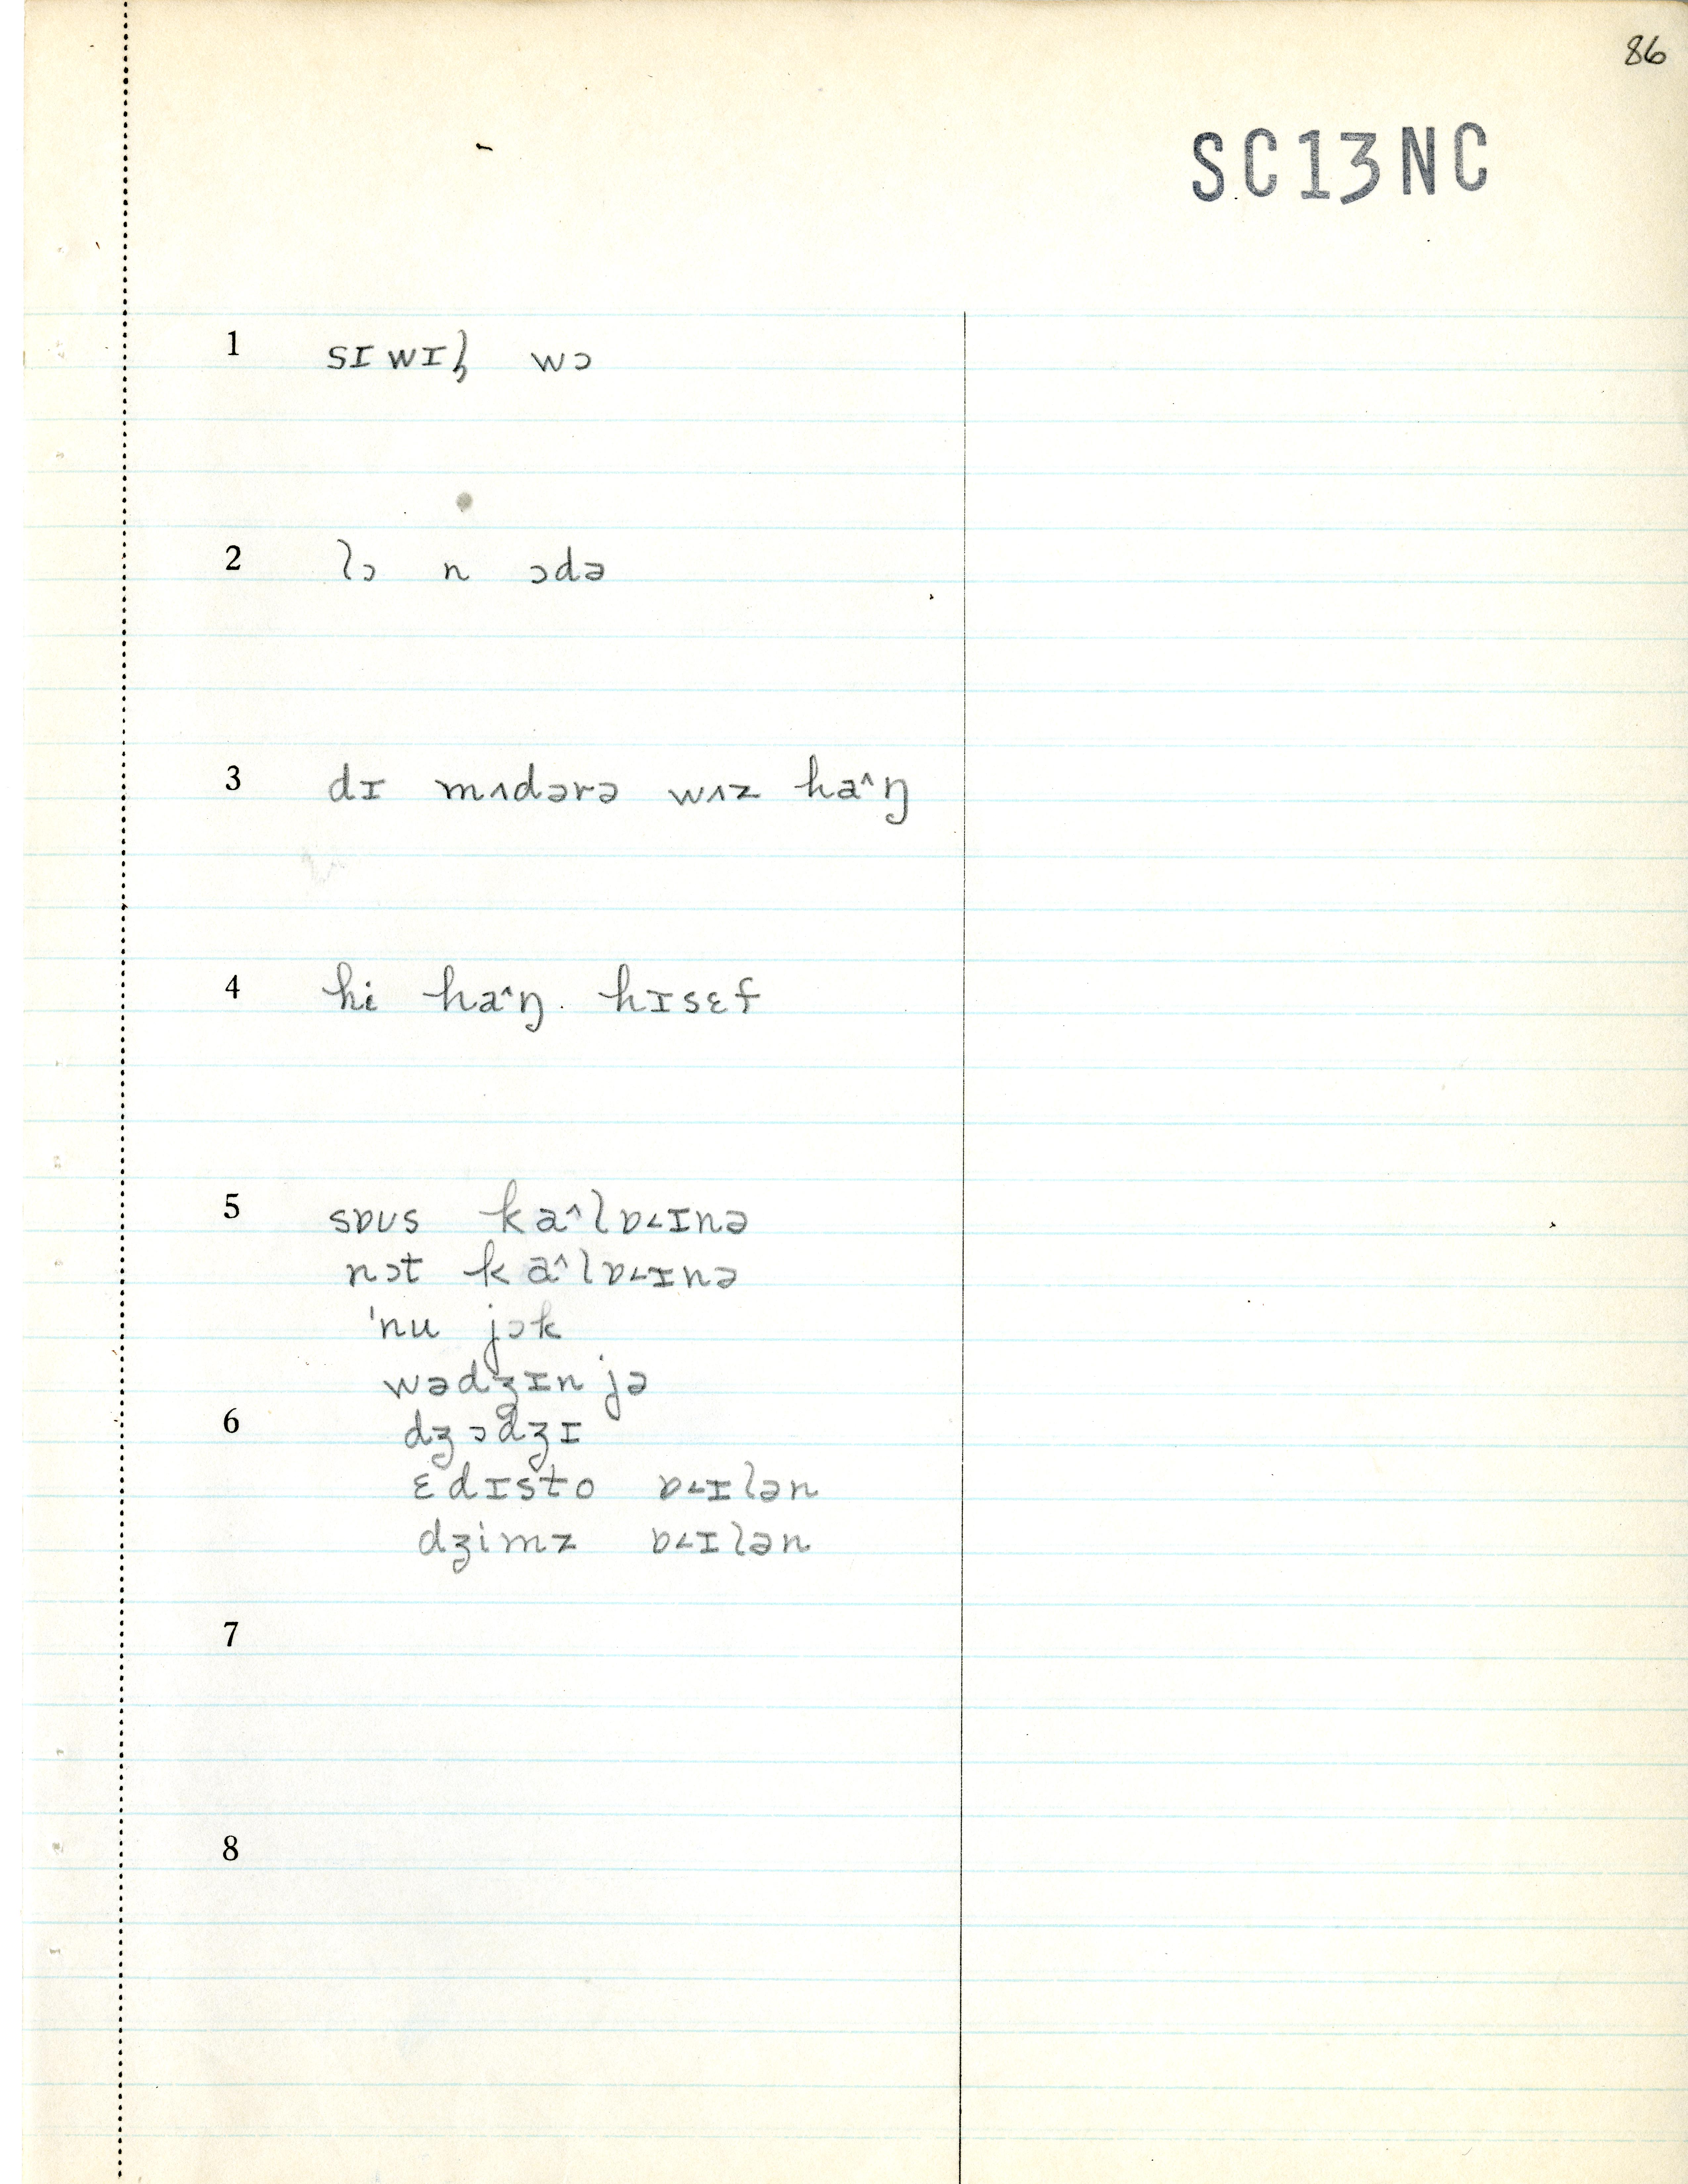 86
SC13NC
1 sɪwɪl̩ wɔ
2 lɔ n ɔdə
3 dɪ mʌdərə wʌz ha^ŋ
4 hi ha^ŋ hɪsɛf
5 sɒʊs ka^lɒ<ɪnə
nɔt ka^lɒ<ɪnə
ˈnu jɔk
wədʒɪnjə
6 dʒɔdʒɪ
ɛdɪsto ɒ<ɪlən
dʒimz ɒ<ɪlən
7
8